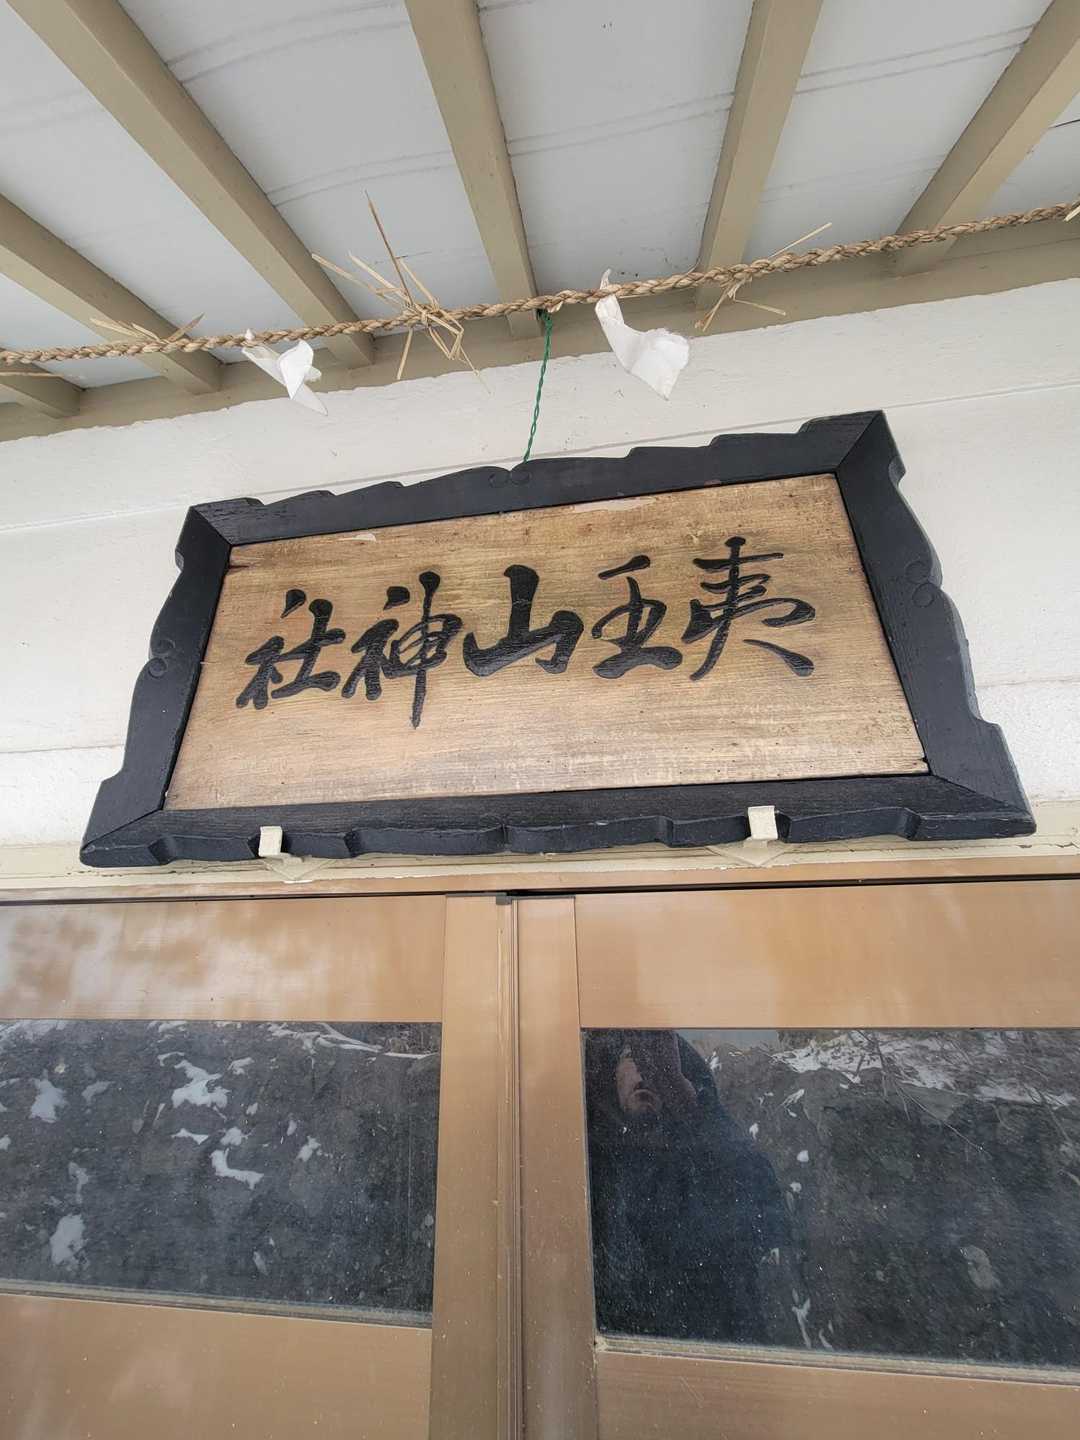 夷王山神社